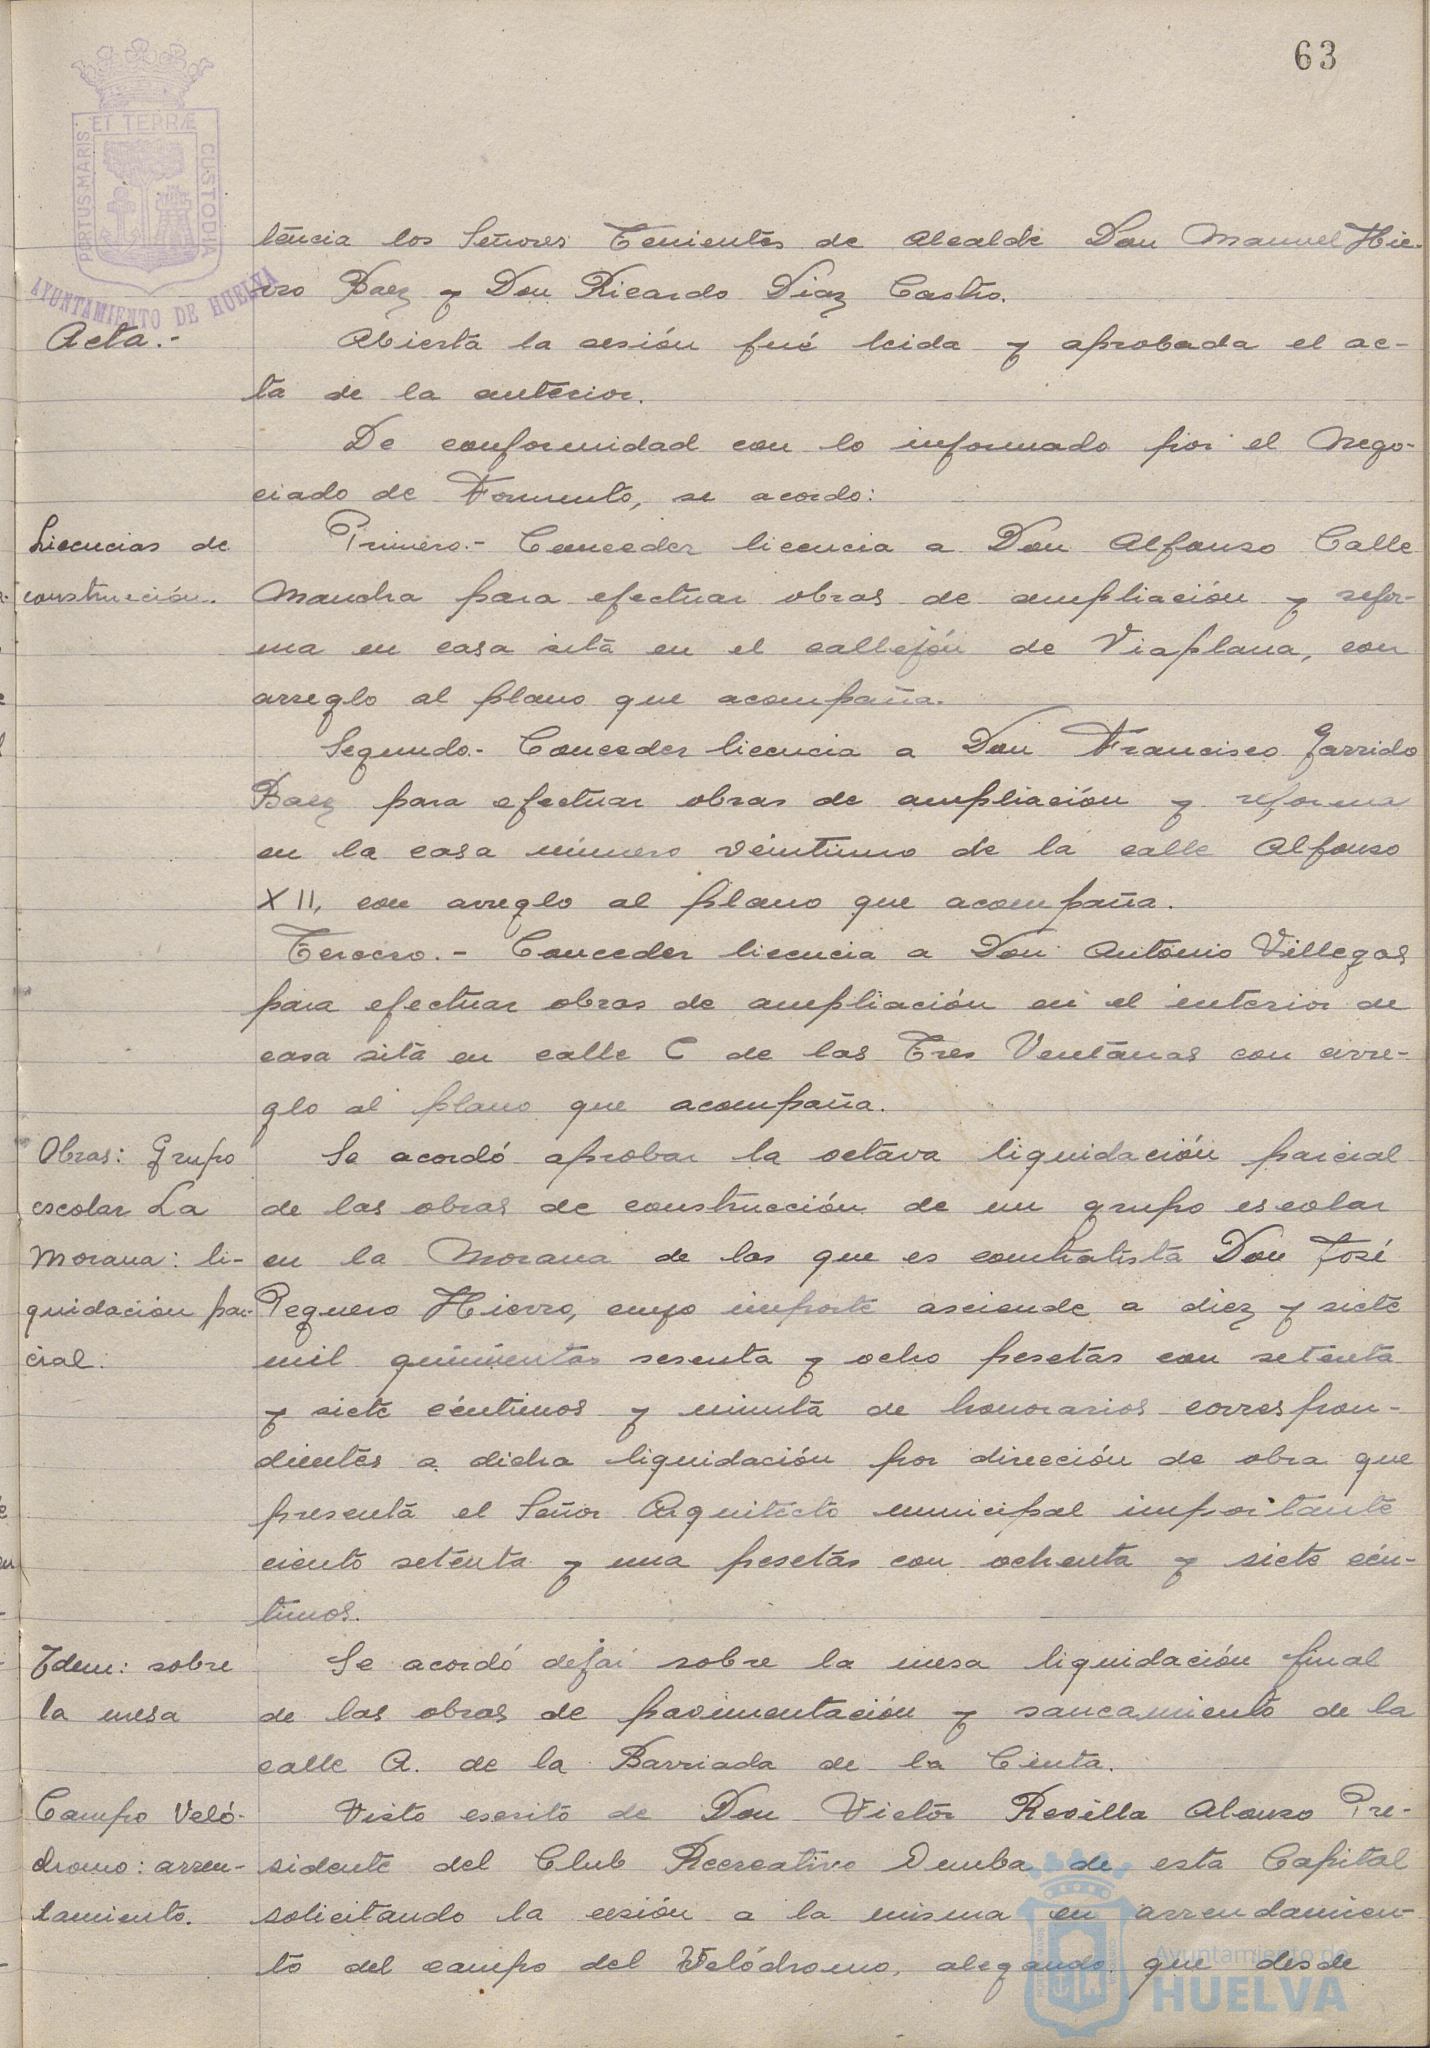 63
PORTUS MARIS
ET TERRÆ
CUSTODIA
AYUNTAMIENTO DE HUELVA
tencia los Señores Tenientes de Alcalde Don Manuel Hie-
rro Baez y Don Ricardo Diaz Castro.
Acta.-
Abierta la sesión fué leida y aprobada el ac-
ta de la anterior.
De conformidad con lo informado por el Nego-
ciado de Fomento, se acordo:
Licencias de
construcción.
Primero.- Conceder licencia a Don Alfonso Calle
Mancha para efectuar obras de ampliación y refor-
ma en casa sita en el callejón de Viaplana, con
arreglo al plano que acompaña.
Segundo.- Conceder licencia a Don Francisco Garrido
Baez para efectuar obras de ampliación y reforma
en la casa número veintiuno de la calle Alfonso
XII, con arreglo al plano que acompaña.
Tercero.- Conceder licencia a Don Antonio Villegas
para efectuar obras de ampliación en el interior de
casa sita en calle C de las Tres Ventanas con arre-
glo al plano que acompaña.
Obras: Grupo
escolar La
Morana: li-
quidación par-
cial.
Se acordó aprobar la octava liquidación parcial
de las obras de construcción de un grupo escolar
en la Morana de las que es contratista Don José
Peguero Hierro, cuyo importe asciende a diez y siete
mil quinientas sesenta y ocho pesetas con setenta
y siete céntimos y minuta de honorarios correspon-
dientes a dicha liquidación por dirección de obra que
presenta el Señor Arquitecto municipal importante
ciento setenta y una pesetas con ochenta y siete cén-
timos.
Idem: sobre
la mesa
Se acordó dejar sobre la mesa liquidación final
de las obras de pavimentación y saneamiento de la
calle A. de la Barriada de la Cinta.
Campo Veló-
dromo: arren-
damiento.
Visto escrito de Don Victor Revilla Alonso Pre-
sidente del Club Recreativo Onuba de esta Capital
solicitando la cesión a la misma en arrendamien-
to del campo del Velódromo, alegando que desde
Ayuntamiento de
HUELVA